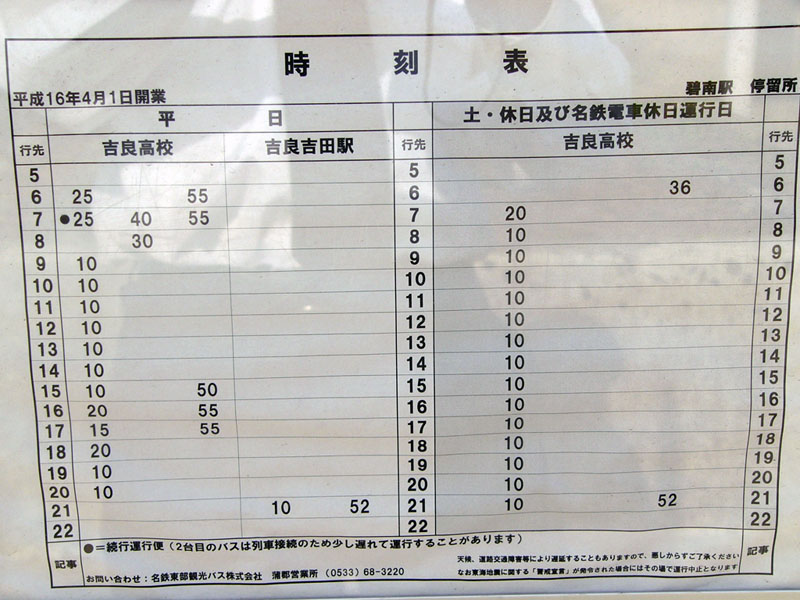 時 刻 表
平成16年4月1日開業
碧南駅 停留所
平 日
土・休日及び名鉄電車休日運行日
行先 吉良高校 吉良吉田駅 行先 吉良高校 行先
5 5 5
6 25 55 6 36 6
7 ●25 40 55 7 20 7
8 30 8 10 8
9 10 9 10 9
10 10 10 10 10
11 10 11 10 11
12 10 12 10 12
13 10 13 10 13
14 10 14 10 14
15 10 50 15 10 15
16 20 55 16 10 16
17 15 55 17 10 17
18 20 18 10 18
19 10 19 10 19
20 10 20 10 20
21 10 52 21 10 52 21
22 22 22
記事 ●=続行運行便(2台目のバスは列車接続のため少し遅れて運行することがあります) 記事
お問い合わせ:名鉄東部観光バス株式会社 蒲郡営業所 (0533)68-3220
天候、道路交通障害等により遅延することもありますので、悪しからずご了承ください
なお東海地震に関する「警戒宣言」が発令された場合にはその場で運行中止となります